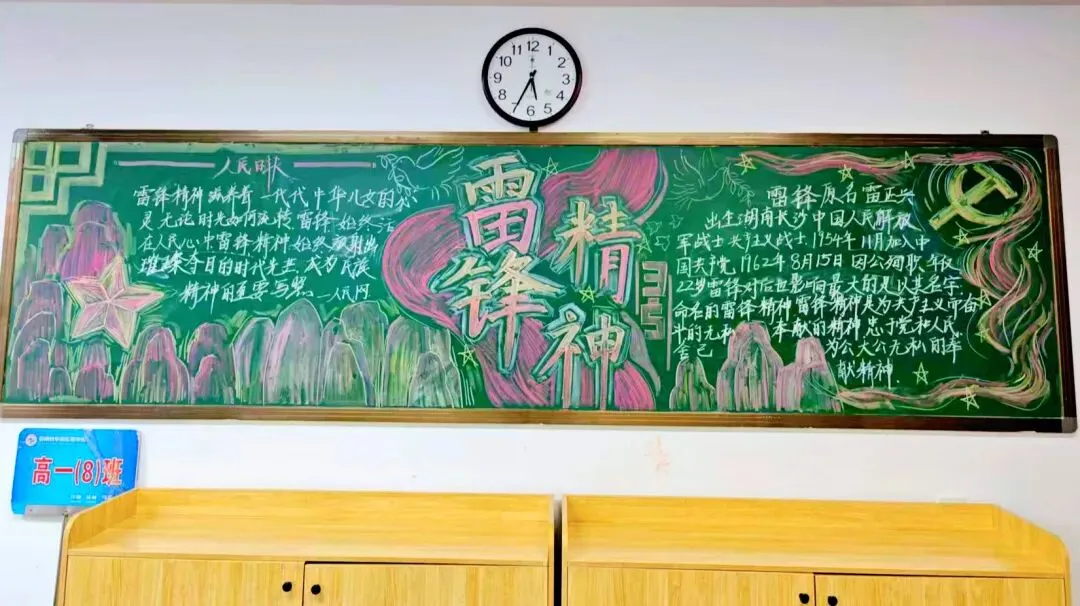 12 1 2 3 4 5 6 7 8 9 10 11
人民日
雷锋精神滋养着一代代中华儿女的心
灵无论时光如何流转雷锋始终活
在人民心中雷锋精神始终散射出
璀璨夺目的时代光芒成为民族
精神的重要写照——人民网
雷锋
精神
35
雷锋原名雷正兴
出生湖南长沙中国人民解放
军战士共产主义战士1954年11月加入中
国共产党1962年8月15日因公殉职年仅
22岁雷锋对后世影响最大的是以其名字
命名的雷锋精神雷锋精神是为共产主义而奋
斗的无私奉献的精神忠于党和人民
舍己为公大公无私的奉
献精神.
高一(8)班